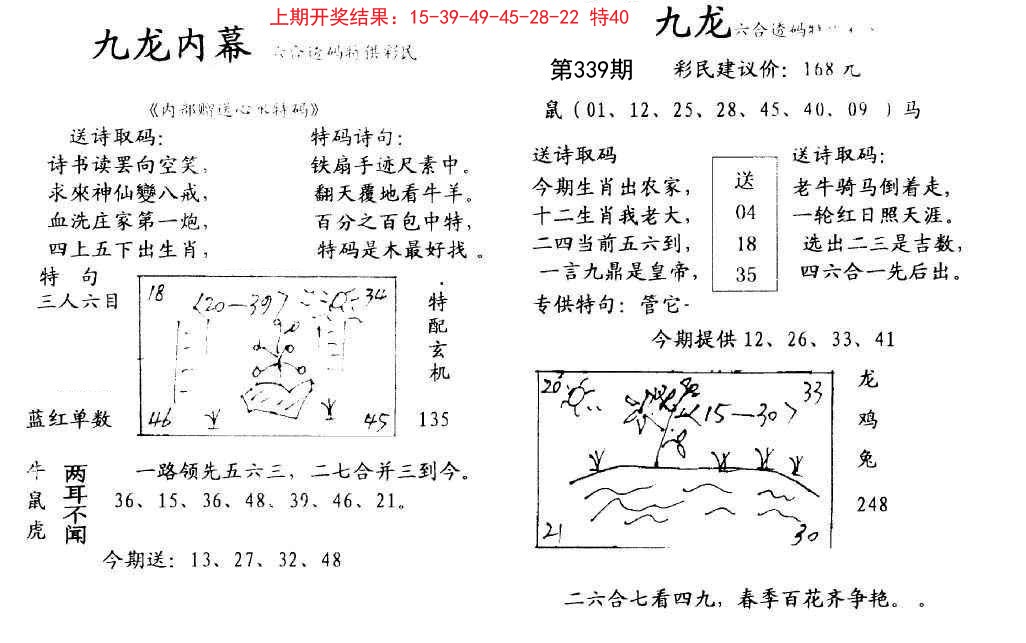 上期开奖结果：15-39-49-45-28-22 特40
九龙内幕 六合透码特供彩民
《内部赠送心水特码》
送诗取码：
诗书读罢向空笑，
求來神仙變八戒，
血洗庄家第一炮，
四上五下出生肖，
特码诗句：
铁扇手迹尺素中。
翻天覆地看牛羊。
百分之百包中特，
特码是木最好找。
特 句
三人六目
蓝红单数
18
〈20—39〉
34
46
45
特配玄机
135
牛鼠虎
两耳不闻
一路领先五六三，二七合并三到今。
36、15、36、48、39、46、21。
今期送：13、27、32、48
九龙 六合透码特
第339期 彩民建议价：168元
鼠（01、12、25、28、45、40、09 ）马
送诗取码
今期生肖出农家，
十二生肖我老大，
二四当前五六到，
一言九鼎是皇帝，
送
04
18
35
送诗取码：
老牛骑马倒着走，
一轮红日照天涯。
选出二三是吉数，
四六合一先后出。
专供特句：管它-
今期提供12、26、33、41
20
33
〈15—30〉
21
30
龙鸡兔
248
二六合七看四九，春季百花齐争艳。。